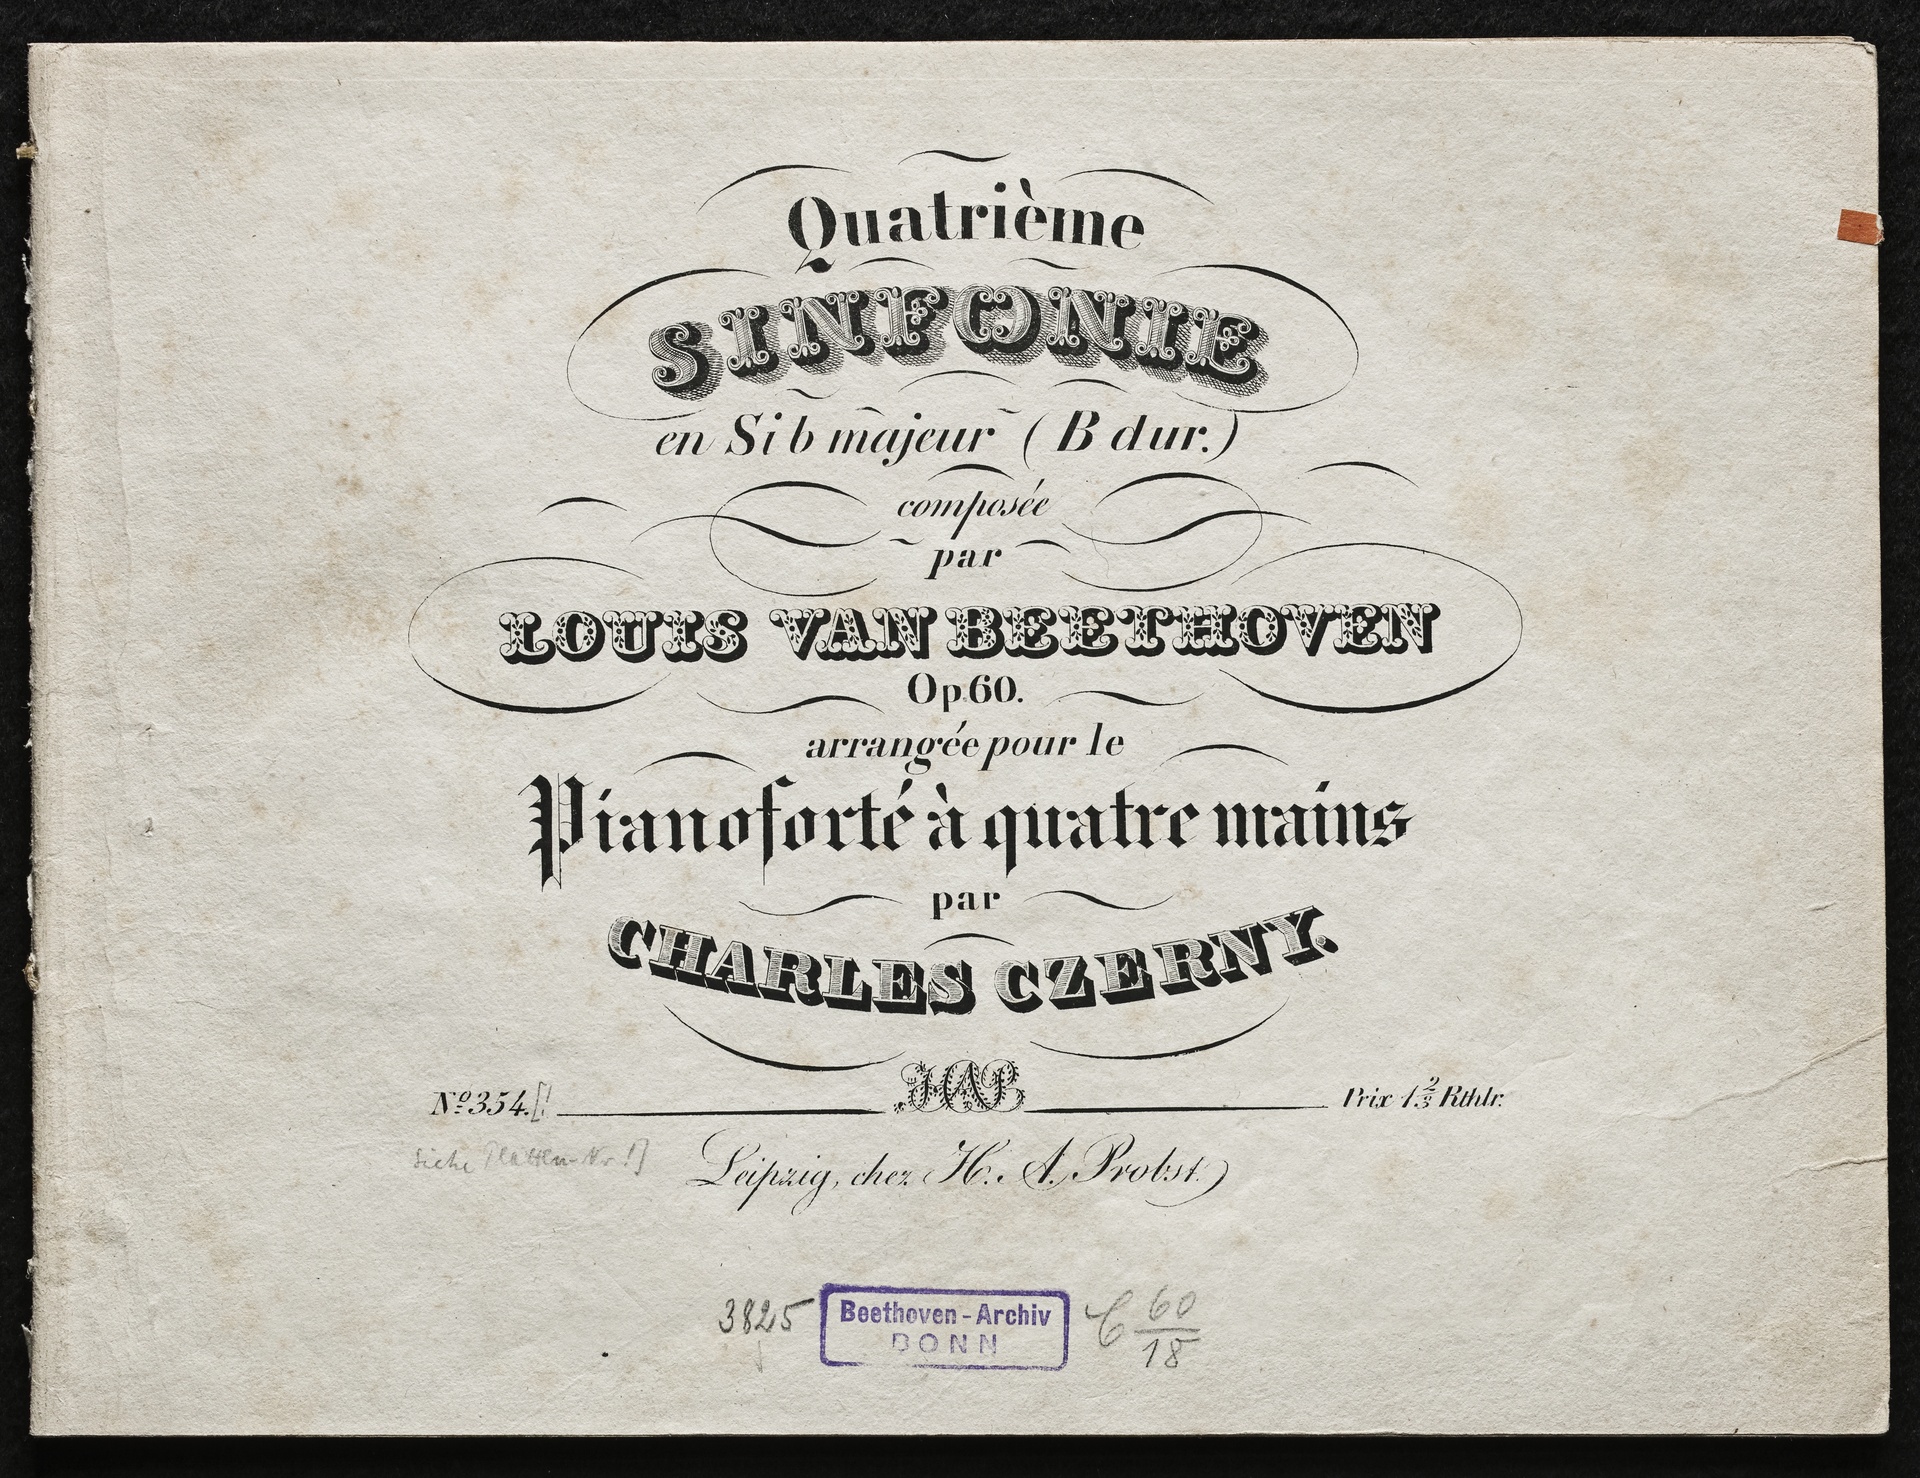 Quatrième
SINFONIE
en Si b majeur (B dur.)
composée
par
LOUIS VAN BEETHOVEN
Op. 60.
arrangée pour le
Pianoforté à quatre mains
par
CHARLES CZERNY.
HAP
No. 354. [! Prix 1 2/3 Rthlr.
siehe Platten-Nr.!]
Leipzig, chez H. A. Probst.
3825
Beethoven-Archiv
BONN
C 60/18